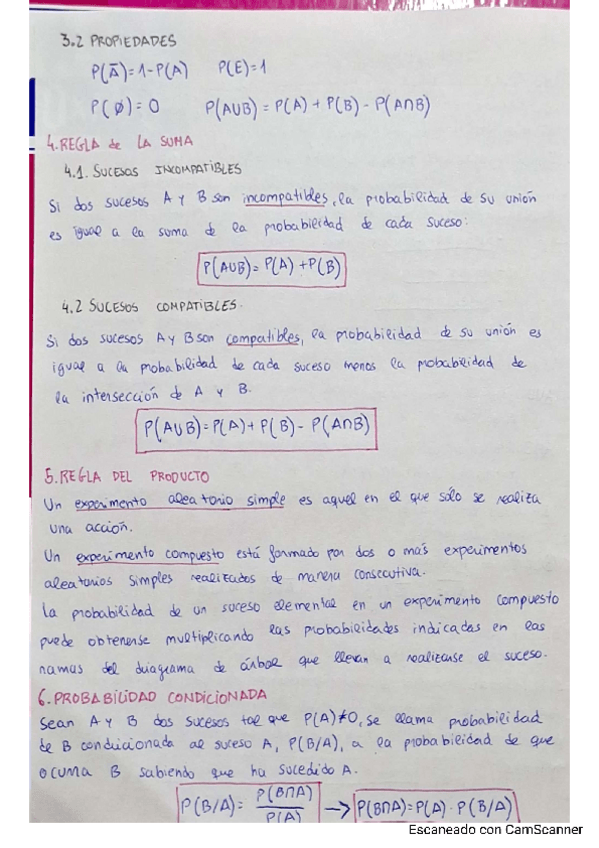 3.2 PROPIEDADES
P(Ā)=1-P(A) P(E)=1
P(∅)=0 P(A∪B)=P(A)+P(B)-P(A∩B)
4.REGLA de LA SUMA
4.1. SUCESOS INCOMPATIBLES
Si dos sucesos A y B son incompatibles, la probabilidad de su unión
es igual a la suma de la probabilidad de cada suceso:
P(A∪B)=P(A)+P(B)
4.2 SUCESOS COMPATIBLES.
Si dos sucesos A y B son compatibles, la probabilidad de su unión es
igual a la probabilidad de cada suceso menos la probabilidad de
la intersección de A y B.
P(A∪B)=P(A)+P(B)-P(A∩B)
5.REGLA DEL PRODUCTO
Un experimento aleatorio simple es aquel en el que sólo se realiza
una acción.
Un experimento compuesto está formado por dos o más experimentos
aleatorios simples realizados de manera consecutiva.
La probabilidad de un suceso elemental en un experimento compuesto
puede obtenerse multiplicando las probabilidades indicadas en las
ramas del diagrama de árbol que llevan a realizarse el suceso.
6.PROBABILIDAD CONDICIONADA
Sean A y B dos sucesos tal que P(A)≠0, se llama probabilidad
de B condicionada al suceso A, P(B/A), a la probabilidad de que
ocurra B sabiendo que ha sucedido A.
P(B/A)= P(B∩A)/P(A) → P(B∩A)=P(A)·P(B/A)
Escaneado con CamScanner